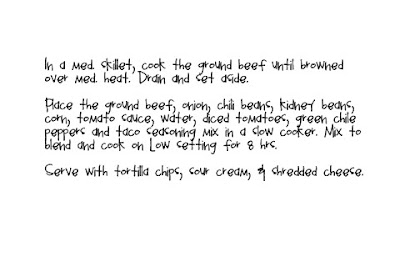 In a med. skillet, cook the ground beef until browned
over med. heat. Drain and set aside.
Place the ground beef, onion, chili beans, kidney beans,
corn, tomato sauce, water, diced tomatoes, green chile
peppers and taco seasoning mix in a slow cooker. Mix to
blend and cook on Low setting for 8 hrs.
Serve with tortilla chips, sour cream, & shredded cheese.